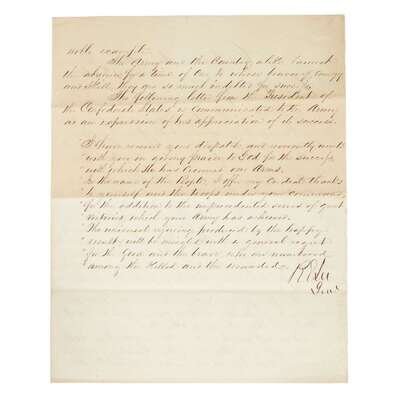 noble example.
The Army and the Country alike lament
the absence for a time of one to whose bravery, energy
and skill they are so much indebted for success.
The following letter from the President of
the Confederate States is communicated to the Army
as an expression of his appreciation of its success.
I have received your dispatch and reverently unite
with you in giving praise to God for the success
with which He has crowned our Arms.
In the name of the People I offer my cordial thanks
to yourself and the troops under your command
for this addition to the unprecedented series of great
victories which your Army has achieved.
The universal rejoicing produced by this happy
result will be mingled with a general regret
for the Good and the brave who are numbered
among the Killed and the wounded.
R E Lee
Genl